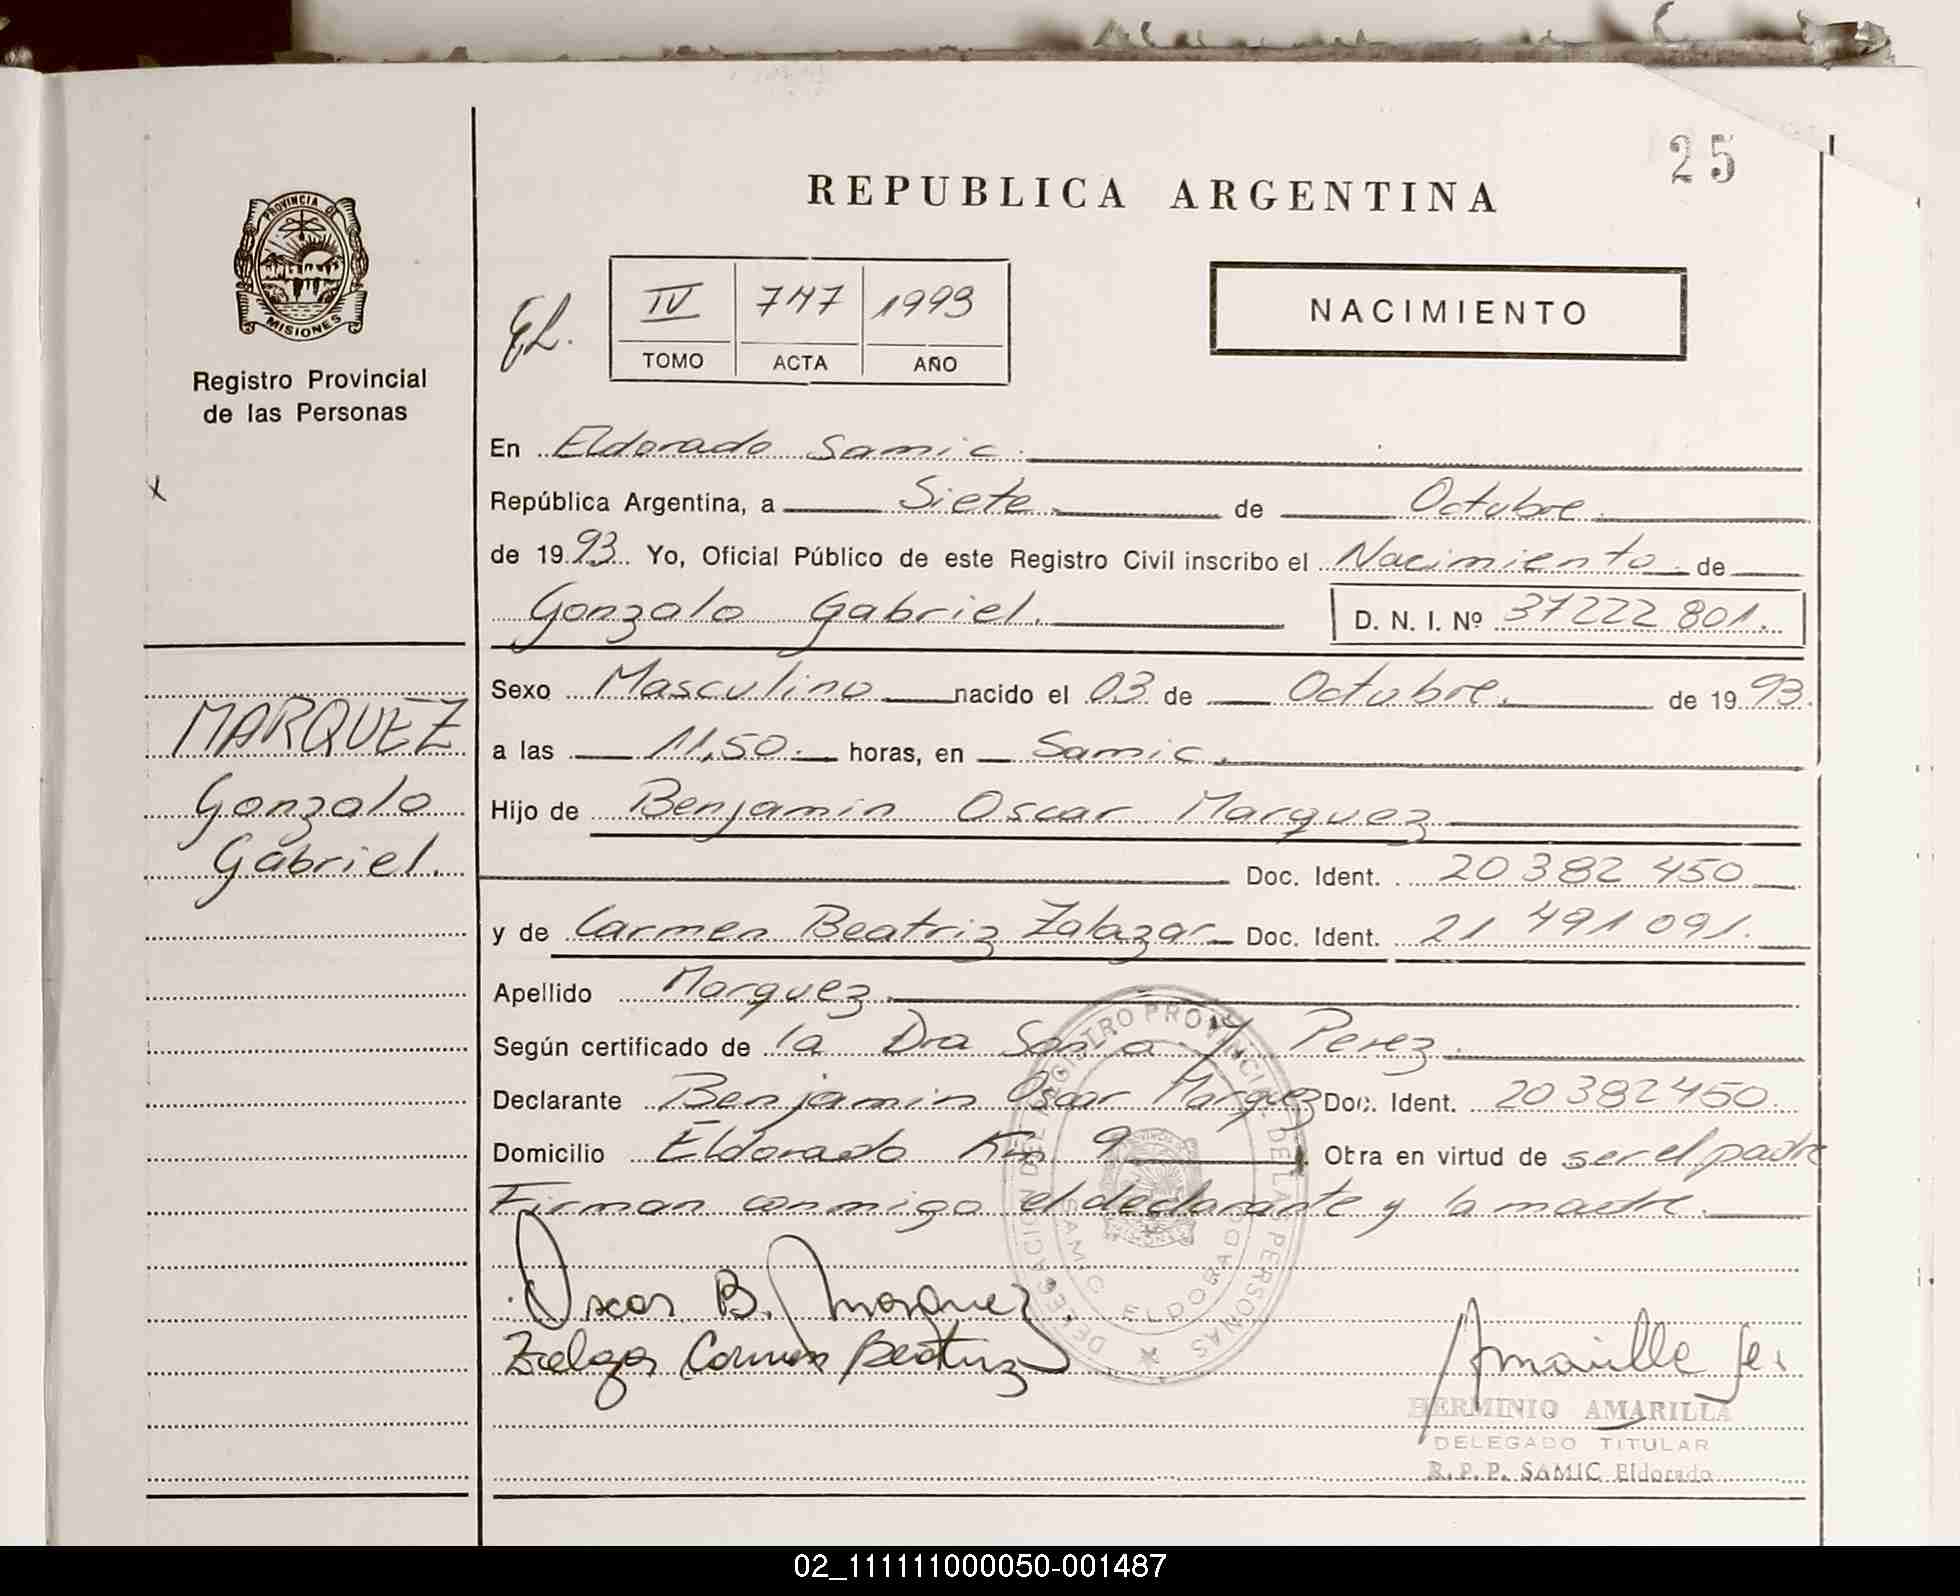 25
REPUBLICA ARGENTINA
PROVINCIA DE
MISIONES
Registro Provincial
de las Personas
IV 747 1993
TOMO ACTA AÑO
NACIMIENTO
En Eldorado Samic.
República Argentina, a Siete de Octubre
de 1993. Yo, Oficial Público de este Registro Civil inscribo el Nacimiento de
Gonzalo Gabriel. D. N. I. Nº 37222801.
Sexo Masculino nacido el 03 de Octubre. de 1993.
a las 11,50. horas, en Samic.
Hijo de Benjamin Oscar Marquez
Doc. Ident. 20382450
y de Carmen Beatriz Zalazar Doc. Ident. 21 491 091.
Apellido Marquez
Según certificado de la Dra Sonia Y. Perez.
Declarante Benjamin Oscar Marquez Doc. Ident. 20382450.
Domicilio Eldorado Km 9 Otra en virtud de ser el padre
Firman conmigo el declarante y la madre.
MARQUEZ
Gonzalo
Gabriel.
Oscar B. Marquez
Carmen Beatriz
DELEGACION DEL REGISTRO PROVINCIAL DE LAS PERSONAS
SAMIC ELDORADO
HERMINIO AMARILLA
DELEGADO TITULAR
R.P.P. SAMIC Eldorado
02_111111000050-001487